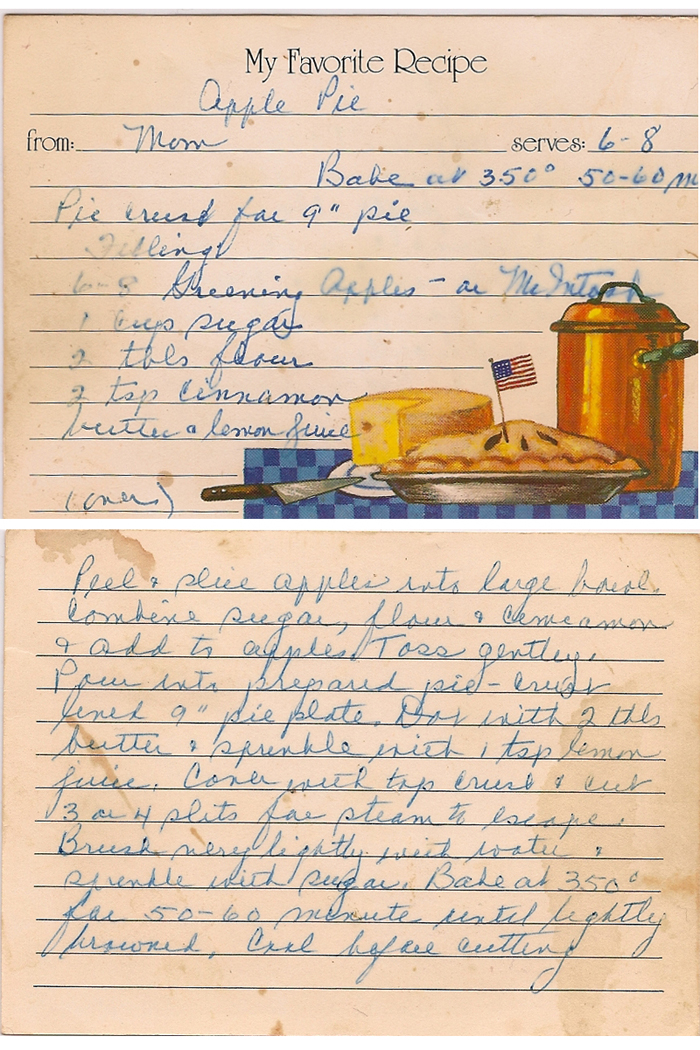 My Favorite Recipe
Apple Pie
from: Mom serves: 6-8
Bake at 350° 50-60 m
Pie crust for 9" pie
Filling
6-8 Greening Apples - or McIntosh
1 cup sugar
2 tbls flour
2 tsp cinnamon
butter & lemon juice
(over)
Peel & slice apples into large bowl.
Combine sugar, flour & cinnamon
& add to apples. Toss gently.
Pour into prepared pie-crust
lined 9" pie plate. Dot with 2 tbls
butter & sprinkle with 1 tsp lemon
juice. Cover with top crust & cut
3 or 4 slits for steam to escape.
Brush very lightly with water &
sprinkle with sugar. Bake at 350°
for 50-60 minute until lightly
browned. Cool before cutting